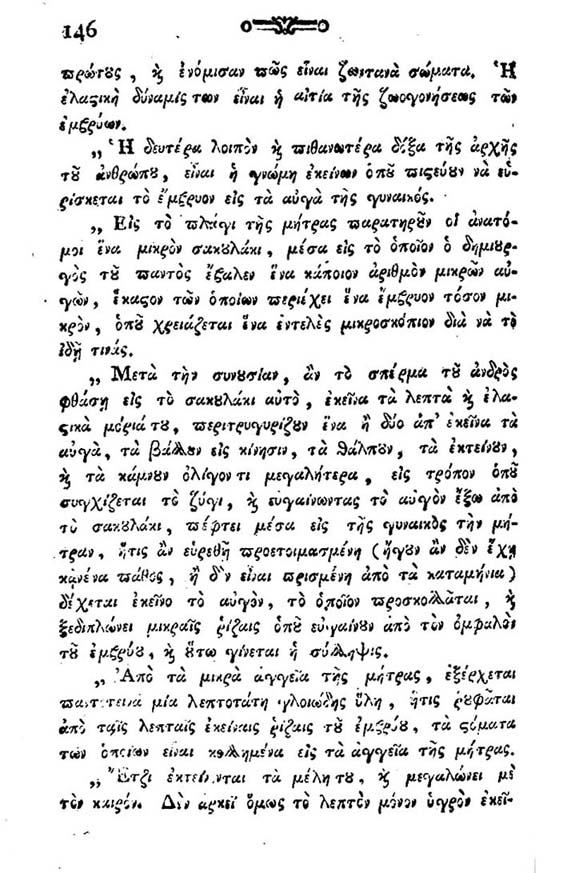 146
πρώτους, ϗ ἐνόμισαν πῶς εἶναι ζωντανὰ σώματα. Ἡ
ἐλαϛικὴ δύναμίς των εἶναι ἡ αἰτία τῆς ζωογονήσεως τῶν
ἐμβρύων.
„ Ἡ δευτέρα λοιπὸν ϗ πιθανωτέρα δόξα τῆς ἀρχῆς
τοῦ ἀνθρώπου, εἶναι ἡ γνώμη ἐκείνων ὁποῦ πιϛεύουν νὰ εὑ-
ρίσκεται τὸ ἔμβρυον εἰς τὰ αὐγὰ τῆς γυναικός.
„ Εἰς τὸ πλάγι τῆς μήτρας παρατηροῦν οἱ ἀνατό-
μοι ἕνα μικρὸν σακουλάκι, μέσα εἰς τὸ ὁποῖον ὁ δημιουρ-
γὸς τοῦ παντὸς ἔβαλεν ἕνα κάποιον ἀριθμὸν μικρῶν αὐ-
γῶν, ἕκαϛον τῶν ὁποίων περιέχει ἕνα ἔμβρυον τόσον μι-
κρὸν, ὁποῦ χρειάζεται ἕνα ἐντελὲς μικροσκόπιον διὰ νὰ τὸ
ἰδῇ τινάς.
„ Μετὰ τὴν συνουσίαν, ἂν τὸ σπέρμα τοῦ ἀνδρὸς
φθάσῃ εἰς τὸ σακουλάκι αὐτὸ, ἐκεῖνα τὰ λεπτὰ ϗ ἐλα-
ϛικὰ μόριά του, περιτρυγυρίζουν ἕνα ἢ δύο ἀπ' ἐκεῖνα τὰ
αὐγὰ, τὰ βάλλουν εἰς κίνησιν, τὰ θάλπουν, τὰ ἐκτείνουν,
ϗ τὰ κάμνουν ὀλίγον τι μεγαλήτερα, εἰς τρόπον ὁποῦ
συγχίζεται τὸ ζύγι, ϗ εὐγαίνωντας τὸ αὐγὸν ἔξω ἀπὸ
τὸ σακουλάκι, πέφτει μέσα εἰς τῆς γυναικὸς τὴν μή-
τραν, ἥτις ἂν εὑρεθῇ προετοιμασμένη (ἤγουν ἂν δὲν ἔχῃ
κᾀνένα πάθος, ἢ δὲν εἶναι πρισμένη ἀπὸ τὰ καταμήνια)
δέχεται ἐκεῖνο τὸ αὐγὸν, τὸ ὁποῖον προσκολλᾶται, ϗ
ξεδιπλώνει μικραῖς ῥίζαις ὁποῦ εὐγαίνουν ἀπὸ τὸν ὀμφαλὸν
τοῦ ἐμβρύου, ϗ οὕτω γίνεται ἡ σύλληψις.
„ Ἀπὸ τὰ μικρὰ ἀγγεῖα τῆς μήτρας, ἐξέρχεται
παντοτεινὰ μία λεπτοτάτη γλοιώδης ὕλη, ἥτις ῥουφᾶται
ἀπὸ ταῖς λεπταῖς ἐκείναις ῥίζαις τοῦ ἐμβρύου, τὰ ϛόματα
τῶν ὁποίων εἶναι κολλημένα εἰς τὰ ἀγγεῖα τῆς μήτρας.
„ Ἔτζι ἐκτείνονται τὰ μέλη του, ϗ μεγαλώνει μὲ
τὸν καιρόν. Δὲν ἀρκεῖ ὅμως τὸ λεπτὸν μόνον ὑγρὸν ἐκεῖ-